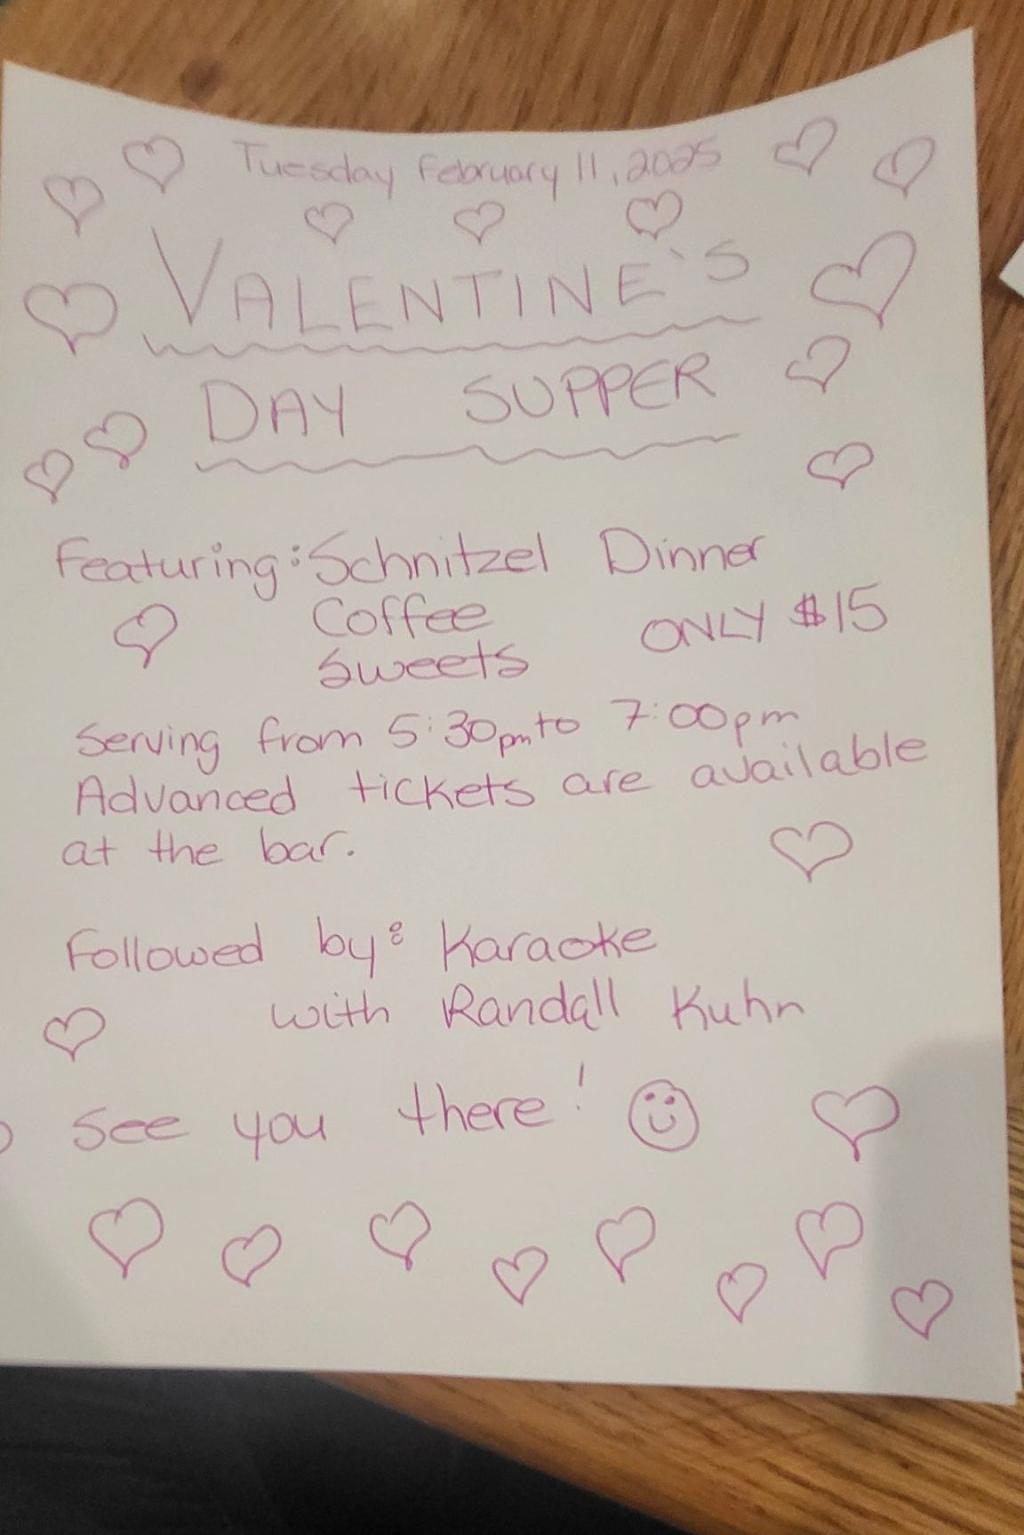 Tuesday February 11, 2025
VALENTINE'S
DAY SUPPER
Featuring: Schnitzel Dinner
Coffee
ONLY $15
Sweets
Serving from 5:30pm to 7:00pm
Advanced tickets are available
at the bar.
Followed by: Karaoke
with Randall Kuhn
See you there!